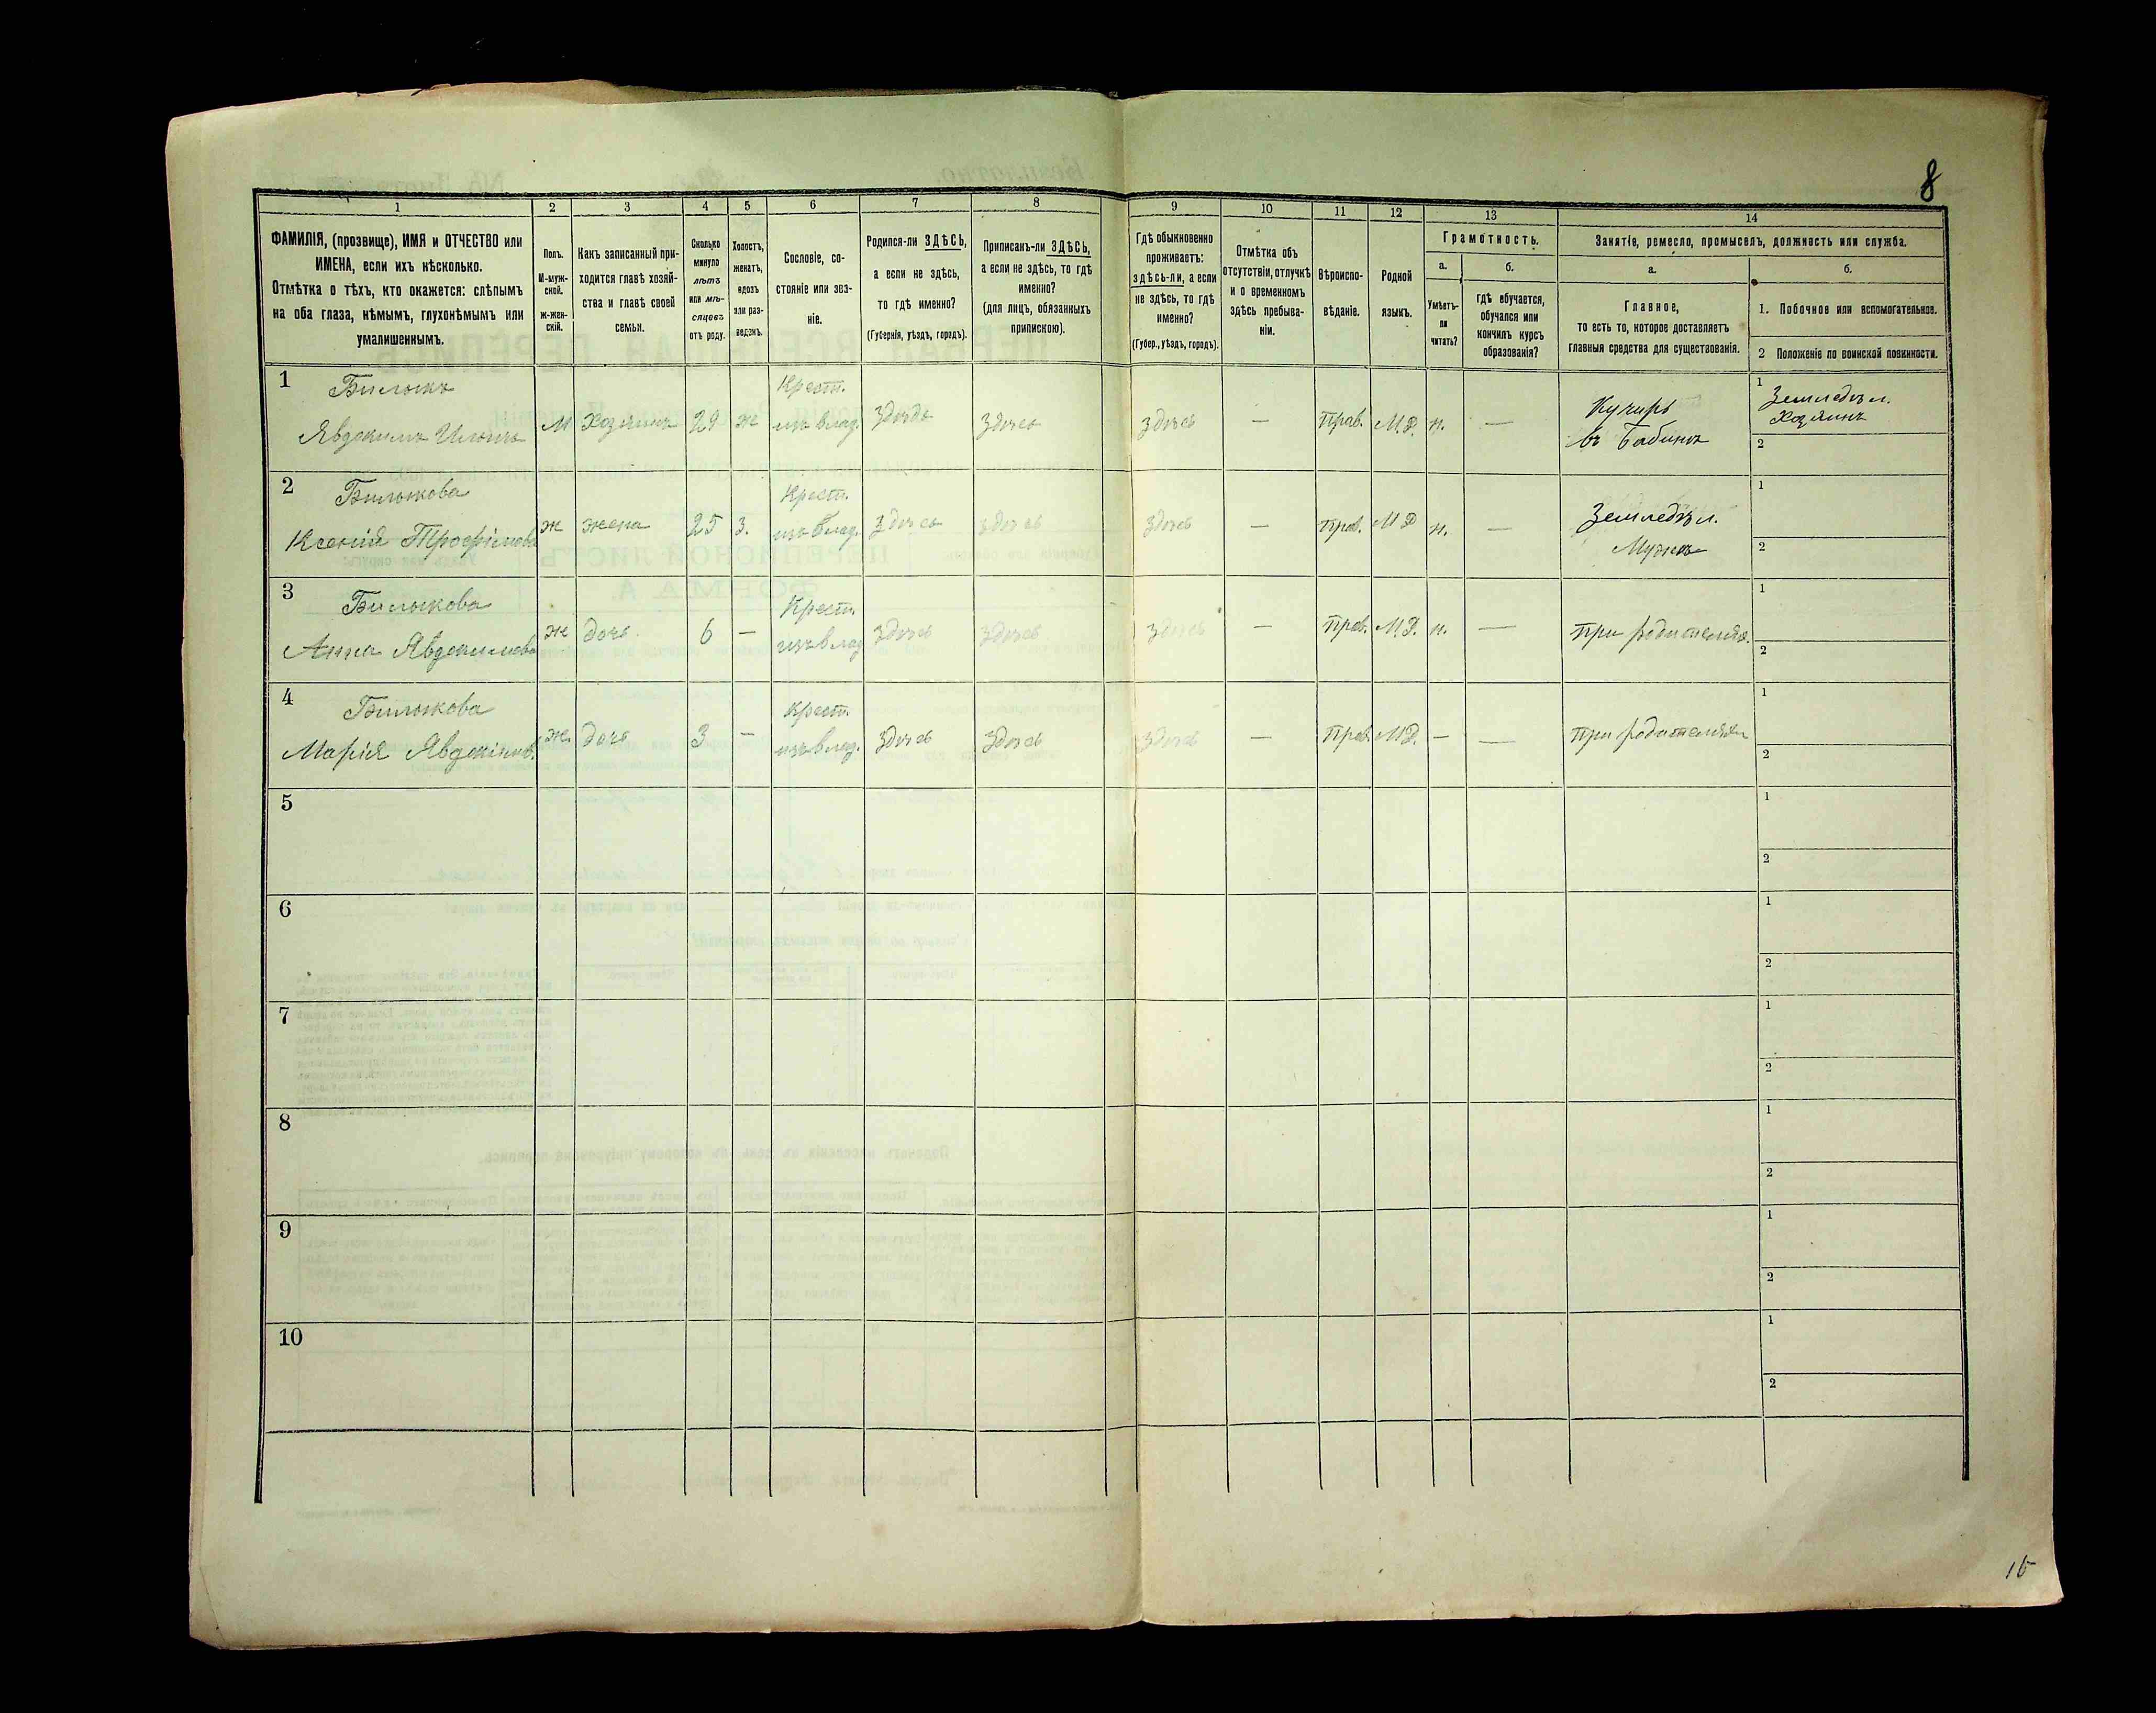 8
1 2 3 4 5 6 7 8 9 10 11 12 13 14
ФАМИЛІЯ, (прозвище), ИМЯ и ОТЧЕСТВО или
ИМЕНА, если ихъ нѣсколько.
Отмѣтка о тѣхъ, кто окажется: слѣпымъ
на оба глаза, нѣмымъ, глухонѣмымъ или
умалишеннымъ.
Полъ.
М-муж-
ской.
ж-жен-
скій.
Какъ записанный при-
ходится главѣ хозяй-
ства и главѣ своей
семьи.
Сколько
минуло
лѣтъ
или мѣ-
сяцевъ
отъ роду.
Холостъ,
женатъ,
вдовъ
или раз-
веденъ.
Сословіе, со-
стояніе или зва-
ніе.
Родился-ли ЗДѢСЬ,
а если не здѣсь,
то гдѣ именно?
(Губернія, уѣздъ, городъ).
Приписанъ-ли ЗДѢСЬ,
а если не здѣсь, то гдѣ
именно?
(для лицъ, обязанныхъ
припискою).
Гдѣ обыкновенно
проживаетъ:
здѣсь-ли, а если
не здѣсь, то гдѣ
именно?
(Губер., уѣздъ, городъ).
Отмѣтка объ
отсутствіи, отлучкѣ
и о временномъ
здѣсь пребыва-
ніи.
Вѣроиспо-
вѣданіе.
Родной
языкъ.
Грамотность.
а.
Умѣетъ-
ли
читать?
б.
гдѣ обучается,
обучался или
кончилъ курсъ
образованія?
Занятіе, ремесло, промыселъ, должность или служба.
а.
Главное,
то есть то, которое доставляетъ
главныя средства для существованія.
б.
1. Побочное или вспомогательное.
2 Положеніе по воинской повинности.
1 Билыкъ Крест. 1 Земледѣл.
Явдокимъ Ильинъ М Хозяинъ 29 ж изъ влад. Здѣсь Здѣсь Здѣсь — прав. М.Р. н. — Кучиръ Хозяинъ
2
2 Билыкова Крест. Земледѣл. 1
Ксенія Трофимова ж жена 25 З. изъ влад. Здѣсь здѣсь Здѣсь — прав. М Р н. — 2
3 Билыкова Крест. 1
Анна Явдокимова ж дочь 6 — изъ влад Здѣсь Здѣсь Здѣсь — прав. М.Р. н. — при родителях. 2
4 Билыкова Крест. 1
Марія Явдокимов. ж. дочь 3 — изъ влад. Здѣсь Здѣсь Здѣсь — прав. М Р. — — при родителях 2
5 1
2
6 1
2
7 1
2
8 1
2
9 1
2
10 1
2